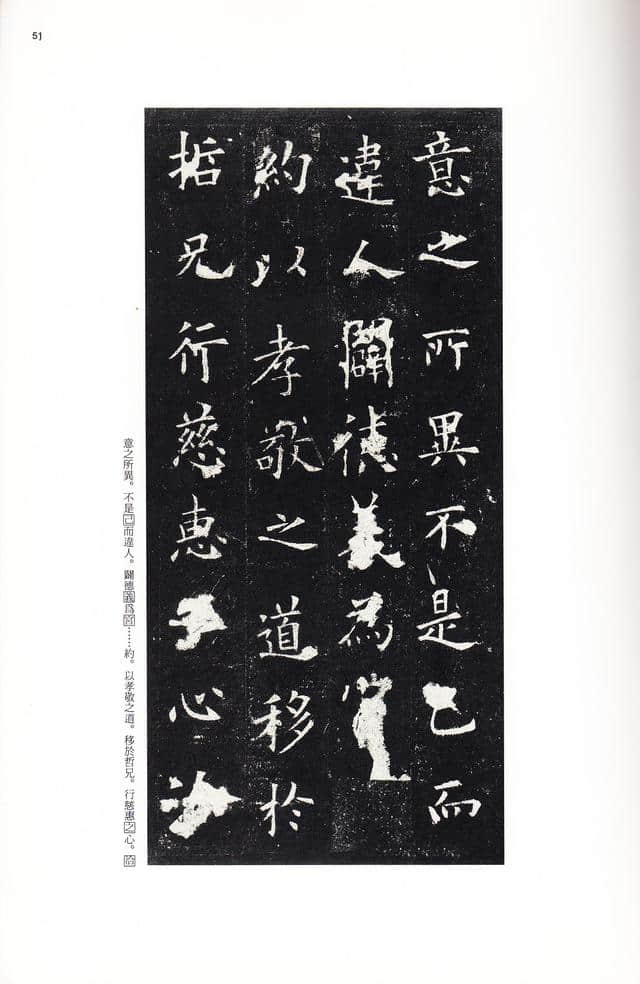 51
意之所異不是己而
違人闢德義為
約以孝敬之道移於
哲兄行慈惠心
意之所異。不是己而違人。闢德義爲宮……約。以孝敬之道。移於哲兄。行慈惠之心。